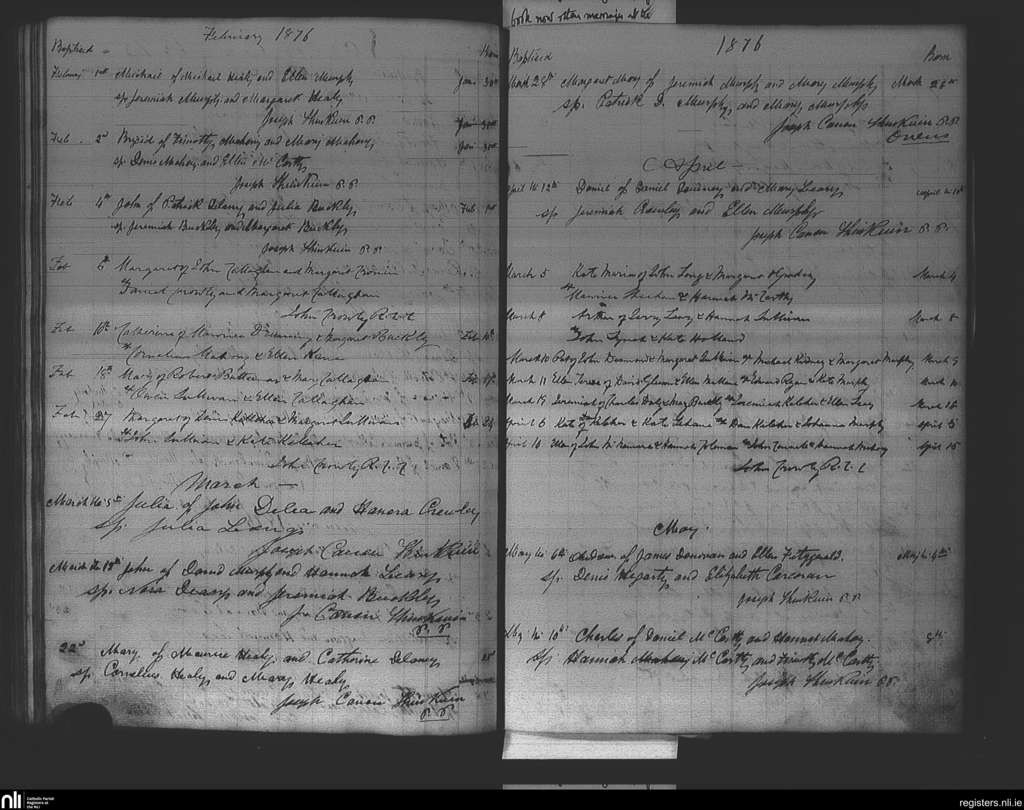 book now other marriages at the
February 1876
Baptised Born
February 1st Michael of Michael Healy and Ellen Murphy Jan. 30th
sp Jeremiah Murphy and Margaret Healy
Joseph ShinKwin P.P.
Feb. 2d Brigid of Timothy Mahony and Mary Mahony Jan 30th
sp Denis Mahony and Ellen Mc Carthy
Joseph ShinKwin P.P.
Feb 4th John of Patrick Delany and Julia Buckley Feb 1st
sp. Jeremiah Buckley and Margaret Buckley
Joseph ShinKwin P.P.
Feb 6th Margaret of John Callaghan and Margaret Cronin
Daniel Crowly and Margaret Callaghan
John Crowly R.C.C
Feb 10th Catherine of Maurice Dinneny & Margaret Buckley Feb 10th
Cornelius Mahony & Ellen
Feb 18th Mary of Robert & Mary Callaghan Feb 17th
Sullivan & Ellen Callaghan
Feb 27 Margaret of Denis Kelleher & Margaret Sullivan Feb 24
John Sullivan & Kate Kelleher
John Crowly R.C.C
March
March the 5th Julia of John Delea and Hanora Crowley
sp. Julia Long
Joseph Canon ShinKwin
March the 15th John of David Murphy and Hannah Leary
sp. Nora Leary and Jeremiah Buckley
Jos Canon ShinKwin
P.P.
22d Mary of Maurice Healy and Catherine Delaney
sp Cornelius Healy and Mary Healy
Joseph Canon ShinKwin
P.P.
1876
Baptised Born
March 28th Margaret Mary of Jeremiah Murphy and Mary Murphy March 26th
sp. Patrick D. Murphy and Mary Murphy
Joseph Canon ShinKwin P.P.
Ovens
April
April the 12th Daniel of Daniel and Mary Leary April the 10th
sp Jeremiah and Ellen Murphy
Joseph Canon ShinKwin P.P.
March 5 Kate Maria of John Long & Margaret March 4
Maurice Sheehan & Hannah McCarthy
March 8 Arthur of Leary & Hannah Sullivan March 8
John Lynch & Kate Holland
March 10 Pat of John Desmond & Margaret Sullivan Michael Kidney & Margaret Murphy March 9
March 11 Ellen Teresa of David Glavin & Ellen Edward Ryan & Kate Murphy March 10
March 19 Jeremiah of Charles Daly & Mary Buckley Jeremiah Kelleher & Ellen Leary March 18
April 6 Kate of Kelleher & Kate Dan Kelleher & Johanna Murphy April 5
April 16 Ellen of John McNamara & Hannah Coleman John & Hannah April 15
John Crowly R.C.C
May.
May the 6th Adam of James Donovan and Ellen Fitzgerald. May the 4th
sp. Denis Hegarty and Elizabeth Corcoran
Joseph ShinKwin P.P.
May the 10th Charles of Daniel McCarthy and Hannah Mahony. 8th
sp. Hannah Mahony McCarthy and Timothy McCarthy
Joseph ShinKwin P.P.
nli
Catholic Parish
Registers at
the NLI
registers.nli.ie